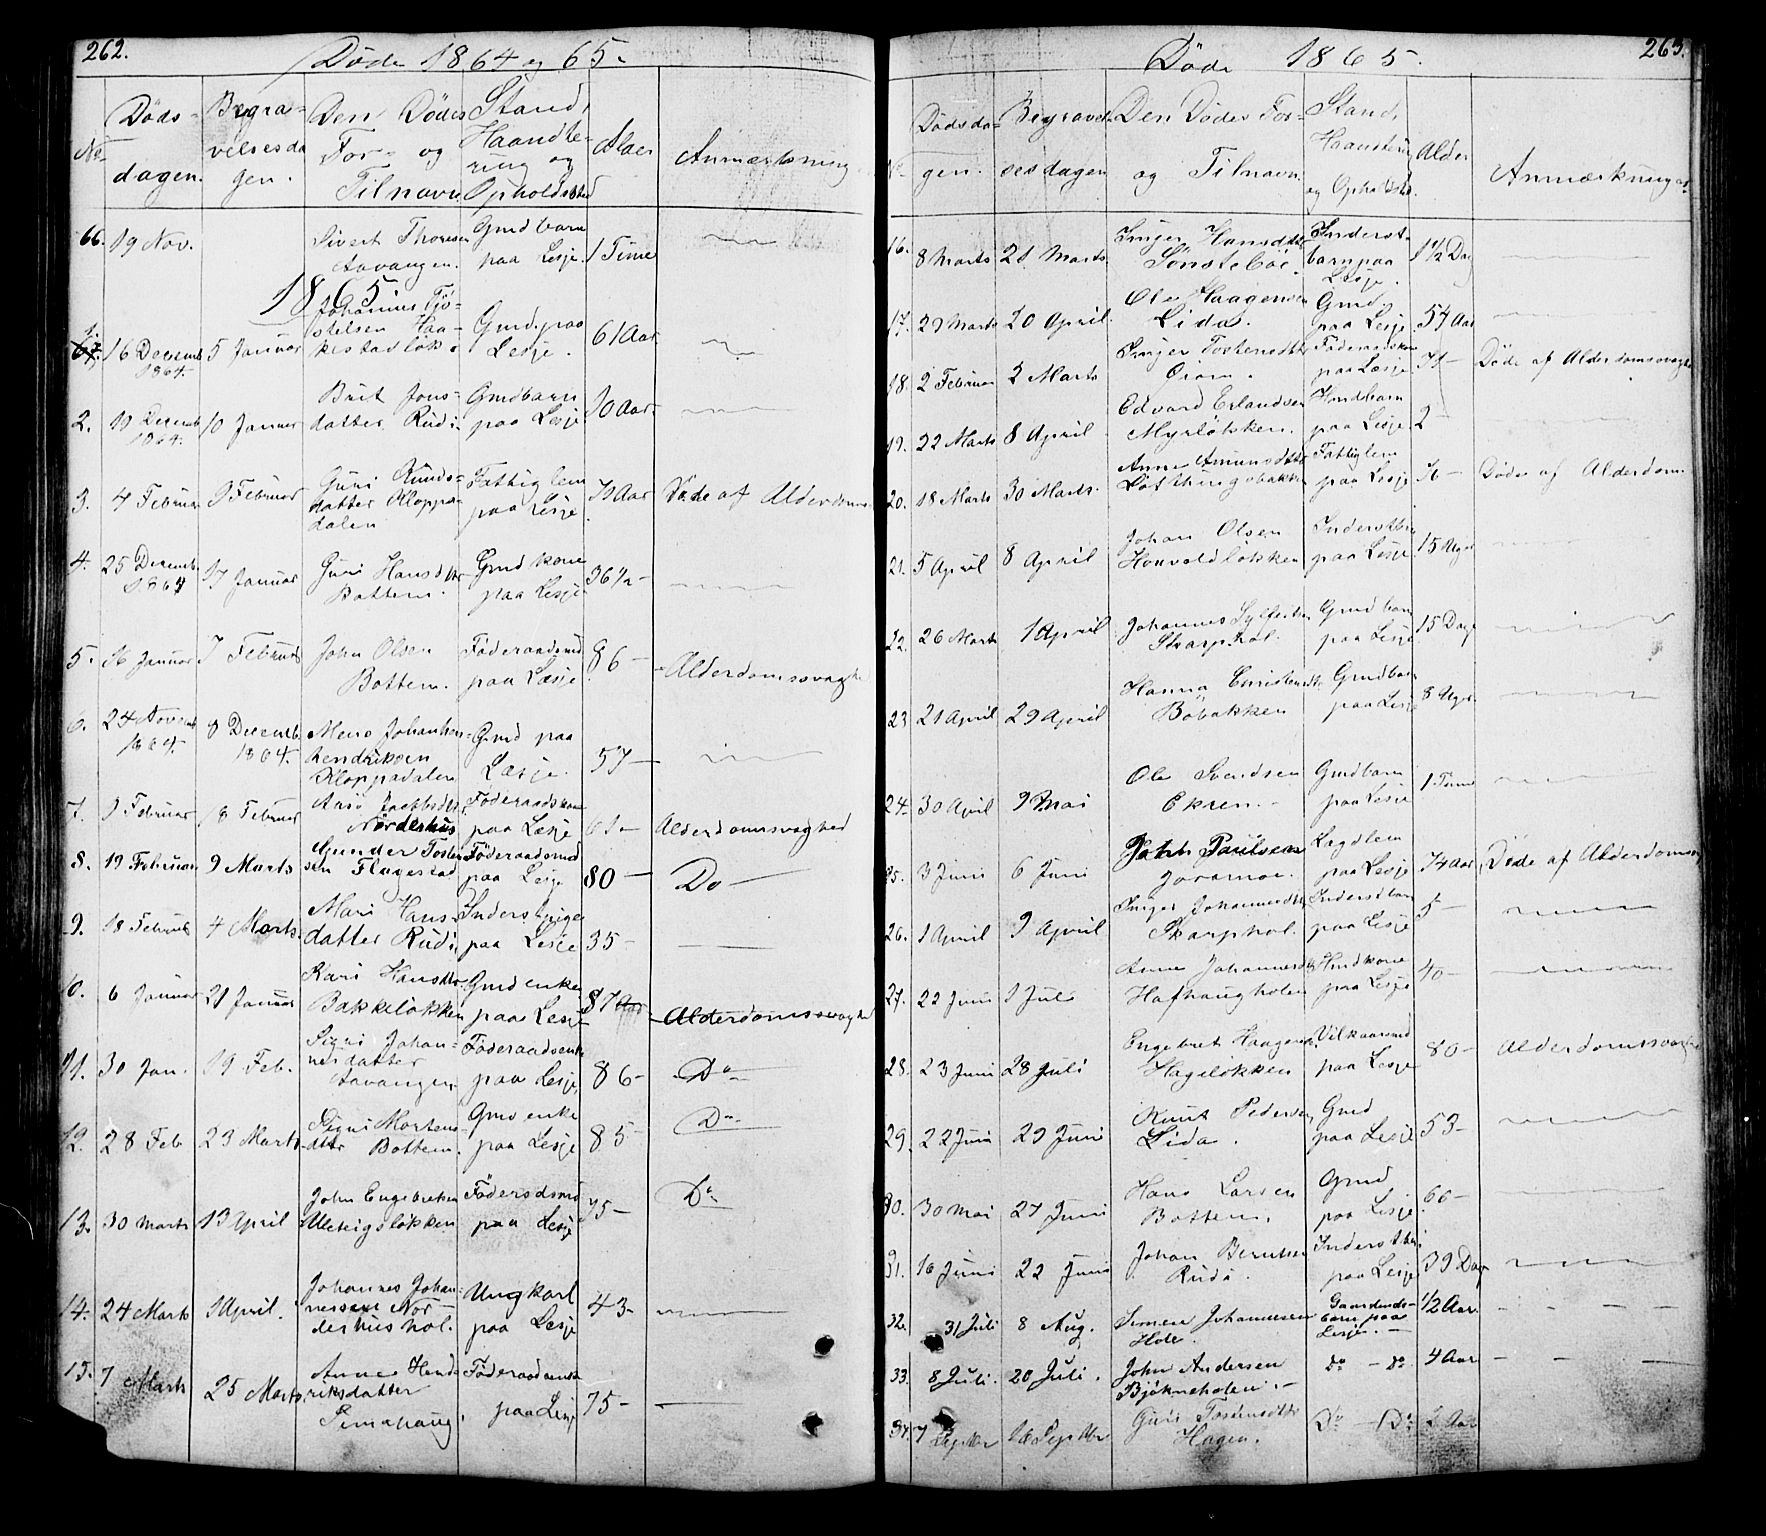 262.
Døde 1864 og 65.
No
Døds-
dagen.
Begra-
velsesda
gen.
Den Dødes
For- og
Tilnavn
Stand,
Haandte-
ring og
Opholdssted
Alder
Anmærkning
66. 19 Nov. Sivert Thoresen Gmdbarn
Aavangen. paa Lesje. 1 Time
1865.
1. 16 Decemb 1864. 5 Januar Johannes Tjö-
stelsen Haa-
kestadløk. Gmd. paa
Lesje. 61 Aar
2. 19 Decemb 1864. 10 Januar Brit Jons-
datter Rudi Gmdbarn
paa Lesje 10 Aar.
3. 4 Februar 9 Februar Guri Knuds-
datter Kloppa-
dalen Fattiglem
paa Lesje 79 Aar Døde af Alderdoms
4. 25 Decemb 1864 17 Januar Guri Hansdtr
Bottem. Gmdkone
paa Lesje 36½ -
5. 16 Januar 7 Februar John Olsen
Bottem. Føderaadsmd
paa Lesje 86 - Alderdomssvaghed
6. 24 Novemb 1864. 8 Decemb. 1864. Mens Johanhen-
hendriksen
Kloppadalen Gmd paa
Lesje. 57 -
7. 9 Februar 18 Februar Jacobsdtr
Nørderhus Føderaadskone
paa Lesje 61 - Alderdomsvaghed
8. 19 Februar 9 Marts Gunder Tosten
sen Flagestad Føderaadsmd
paa Lesje 80 - Do -
9. 18 Februar 4 Marts. Mari Hans-
datter Rudi Inderstpige
paa Lesje 35 -
10. 6 Januar 21 Januar Kari Hansdtr
Bakkeløkken Gmd enke
paa Lesje 87 Aar Alderdomssvaghed
11. 30 Jan. 19 Feb. Signi Johan-
nesdatter
Aavangen Føderaadsenke
paa Lesje 86 - Do
12. 28 Feb 23 Marts Signi Mortens-
dttr Bottem. Gmd enke
paa Lesje 85 - Do
13. 30 Marts 13 April John Engebretsen
Uletigsløkken Föderdsmd
paa Lesje 75 - Do
14. 24 Marts 1 April. Johannes Johan-
nessen Nor-
derhus hol. Ungkarl
paa Lesje 43 -
15. 7 Marts 25 Marts Anne Hend
riksdatter
Semshaug Føderaadsenke
paa Lesje 75 -
263.
Døde 1865.
No
Dødsda-
gen.
Begravel-
sesdagen
Den Dødes For-
og Tilnavn.
Stand,
Haandtering
og Opholdsted
Alder
Anmærkninger
16. 8 Marts 21 Marts. Inger Hansdtr
Sønstebøe. Inderst-
barn paa
Lesje. 1½ Dag
17. 29 Marts 20 April. Ole Haagensen
Lida. Gmd.
paa Lesje 54 Aar
18. 2 Februar 2 Marts Inger Tostensdtr
Ørom. Føderaadskone
paa Læsje 71 - Døde af Alderdomsvaghed
19. 22 Marts 8 April Edvard Erlandsen
Myrløkken. Huusbarn
paa Lesje 2 -
20. 18 Marts 30 Marts. Anne Amundsdtr
bakken Fattiglem
paa Lesje 76 - Døde af Alderdom
21. 5 April 8 April Johan Olsen
løkken Inderstbn
paa Lesje 15 Uger
22. 26 Marts 1 April Johannes Sylfestsen
Skarphol. Gmdbarn
paa Lesje 15 Dage
23 21 April 29 April Hanna Christensdtr
Böbakken Gmdbarn
paa Lesje 8 Uger
24. 30 April 9 Mai Ole Svendsen
Ekren. Gmdbarn
paa Lesje 1 Time
25. 3 Juni 6 Juni Jakob Paulsen
Joramoe. Legdlem
paa Lesje 74 Aar Døde af Alderdomssv
26. 1 April 9 April Inger Johannesdtr
Skarphol. Inderstbarn
paa Lesje 5 -
27. 22 Juni 1 Juli Anne Johannesdtr
Hafhaugholen Huuskone
paa Lesje 40 -
28. 23 Juni 28 Juli Engebret Haagensen
Hageløkken Vilkaarsmd
paa Lesje 80 - Alderdomssvaghed
29. 22 Juni 29 Juni Knut Pedersen
Lida. Gmd
paa Lesje 53 -
30. 30 Mai 27 Juni Hans Larsen
Bottem. Gmd
paa Lesje 60 -
31. 16 Juni 22 Juni Johan Berntsen
Rudi. Inderstbn
paa Lesje 39 Dage
32. 31 Juli 8 Aug. Simen Johannesen
Hole. Gaardmds-
barn paa
Lesje. - 1/2 Aar. - - -
33. 8 Juli. 20 Juli. John Andersen
Bjökneholen. - do - do 4 Aar - - -
34. 7 Septbr 16 Septbr Guri Tostensdtr
Hagen. Do - Do 2 Aar